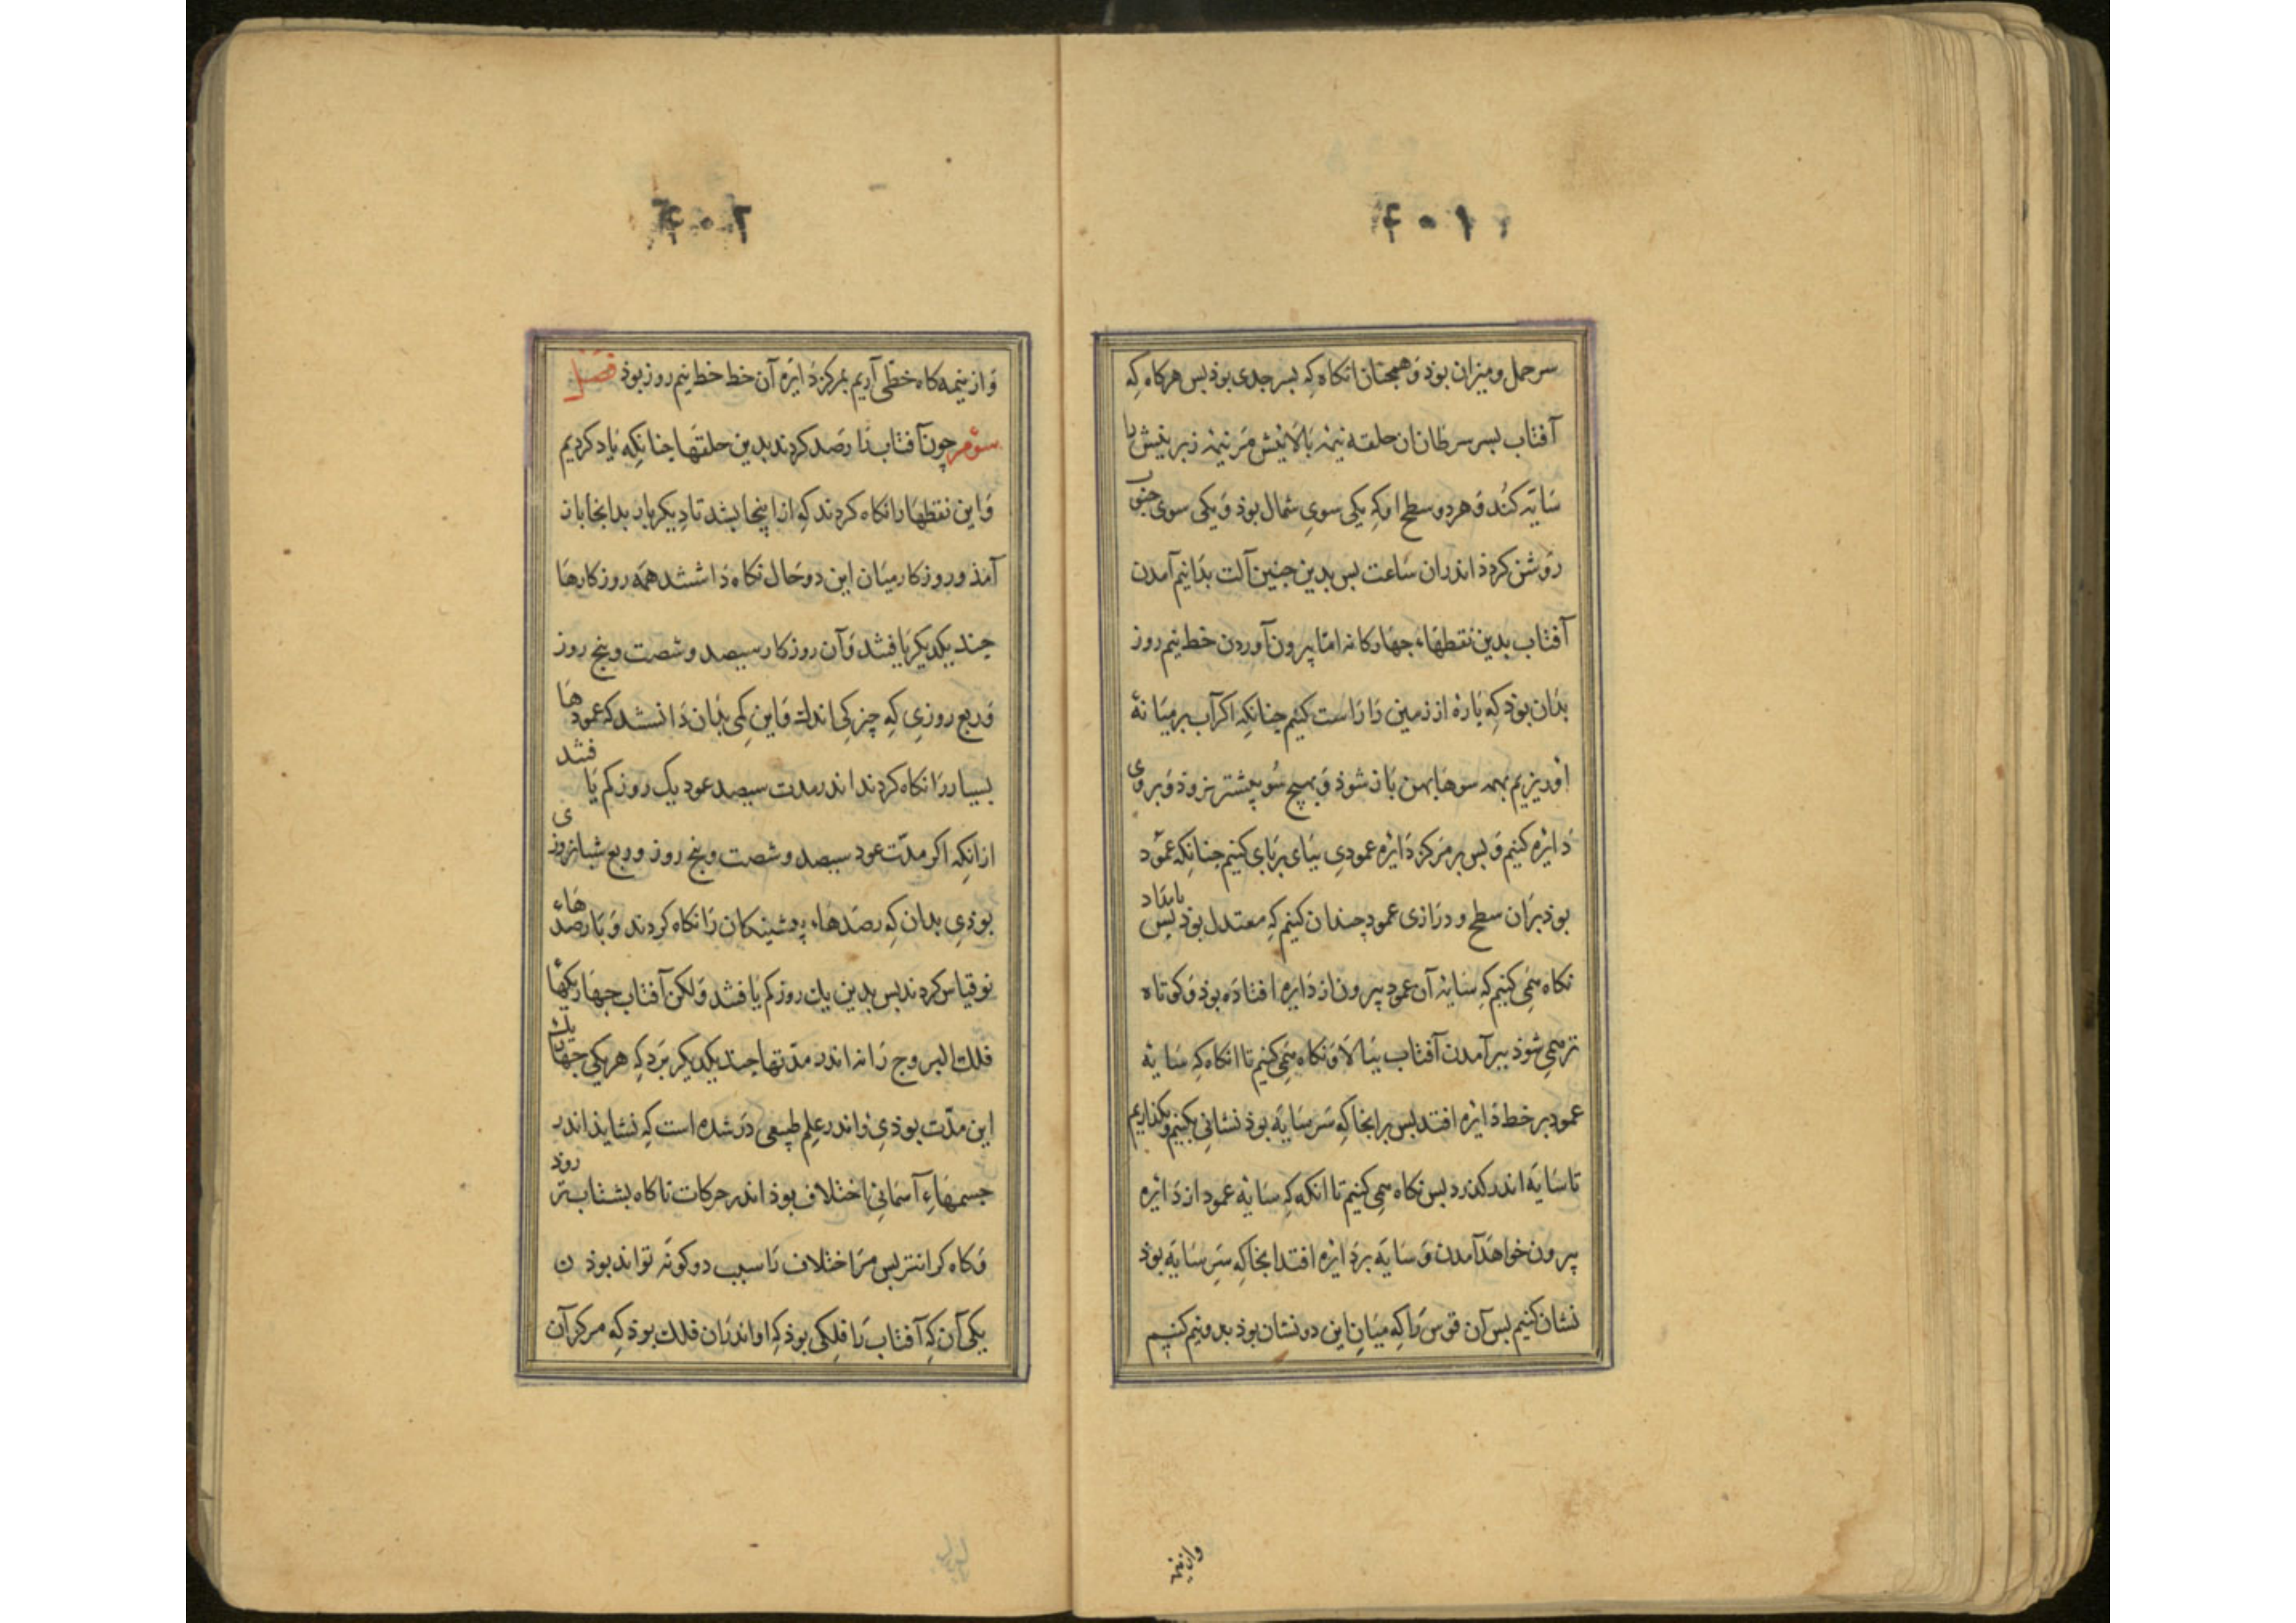 ۴۰۱
سر حمل و میزان بوذ و همجنان انکاه که بسر جدی بوذ بس هرکاه که
آفتاب بسر سرطان ان حلقه نیمهٔ بالاییش مر نیمهٔ زیریش را
سایه کند و هر دو سطح او که یکی سوی شمال بوذ و یکی سوی جنوب
روشن کردذ اندران ساعت بس بدین جنین آلت بدانیم آمدن
آفتاب بدین نقطهاء جهارکانه امّا بیرون آوردن خط نیم روز
بدان بوذ که باره از زمین را راست کنیم جنانکه اکر آب بر میانهٔ
او ریزیم بهمه سوها بهن باز شوذ و بهیج سو بیشتر نروذ و بر وی
دایره کنیم و بس بر مرکز دایره عمودی بیای بر بای کنیم جنانکه عمود
بوذ بران سطح و درازی عمود چندان کنیم که معتدل بوذ بس بامداد
نکاه می کنیم که سایهٔ آن عمود بیرون از دایره افتاده بوذ و کوتاه
تر می شوذ ببر آمدن آفتاب ببالا و نکاه می کنیم تا انکاه که سایهٔ
عمود بر خط دایره افتد بس برانجا که سر سایه بوذ نشانی بکنیم و بکذاریم
تا سایه اندر کذرد بس نکاه می کنیم تا انکه که سایهٔ عمود از دایره
بیرون خواهد آمدن و سایه بر دایره افتد انجا که سر سایه بوذ
نشان کنیم بس آن قوس را که میان این دو نشان بوذ بدو نیم کنیم
واز نیمه
۴۰۲
و از نیمه کاه خطّی آریم بمرکز دایره آن خط خط نیم روز بوذ فصل
سوم چون آفتاب را رصد کردند بدین حلقها جنانکه یاد کردیم
و این نقطها را نکاه کردند که از اینجا بشد تا دیکر بار بدانجا باز
آمذ و روزکار میان این دو حال نکاه داشتند همه روزکارها
جند یکدیکر یافتند و آن روزکار سیصد و شصت و بنج روز
و ربع روزی که چیزکی اندک و این کمی بدان دانستند که عمودها
بسیار را نکاه کردند اندر مدت سیصد عود یک روز کم یافتند
ازانکه اکر مدّت عود سیصد و شصت و بنج روز و ربع شبانروزی
بوذی بدان که رصدهاء بیشینکان را نکاه کردند و با رصدهاء
نو قیاس کردند بس بدین یک روز کم یافتند و لکن آفتاب جهاریکهاء
فلک البروج را نه اندر مدّتها جند یکدیکر برد که هر یکی جهار یک
این مدّت بوذی و اندر علم طبیعی درشده است که نشایذ اندر
جسمهاءِ آسمانی اختلاف بوذ اندر حرکات تا کاه بشتاب تر روذ
و کاه کرانتر بس مر اختلاف را سبب دو کونه تواند بوذ ن
یکی آن که آفتاب را فلکی بوذ که او اندران فلک بوذ که مرکز آن